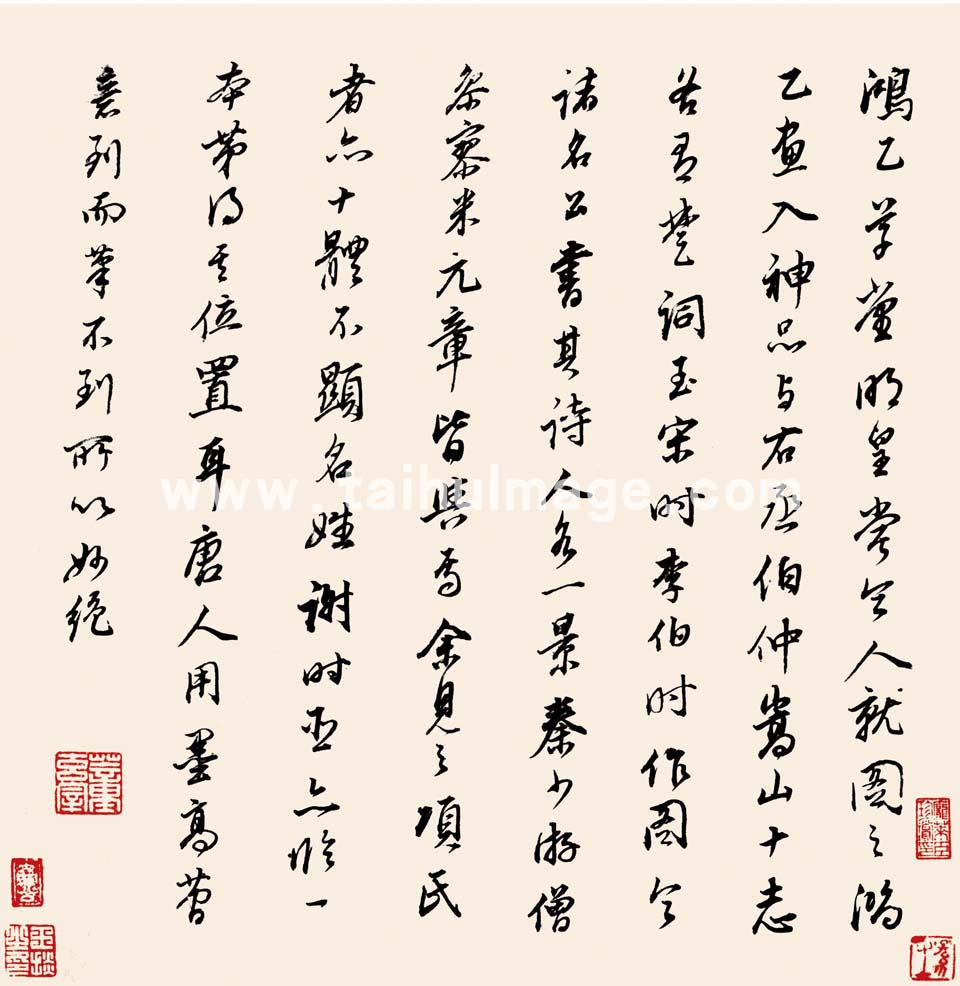 鴻乙草堂明皇嘗令人就圖之鴻
乙畫入神品与右丞伯仲嵩山十志
若有楚詞至宋时李伯时作図令
諸名公書其詩人各一景秦少游僧
参寥米元章皆與焉余見之項氏
者亦十體不顯名姓謝时臣亦臨一
本第得其位置耳唐人用墨高簡
意到而筆不到所以妙絶
www.taihuImage.com